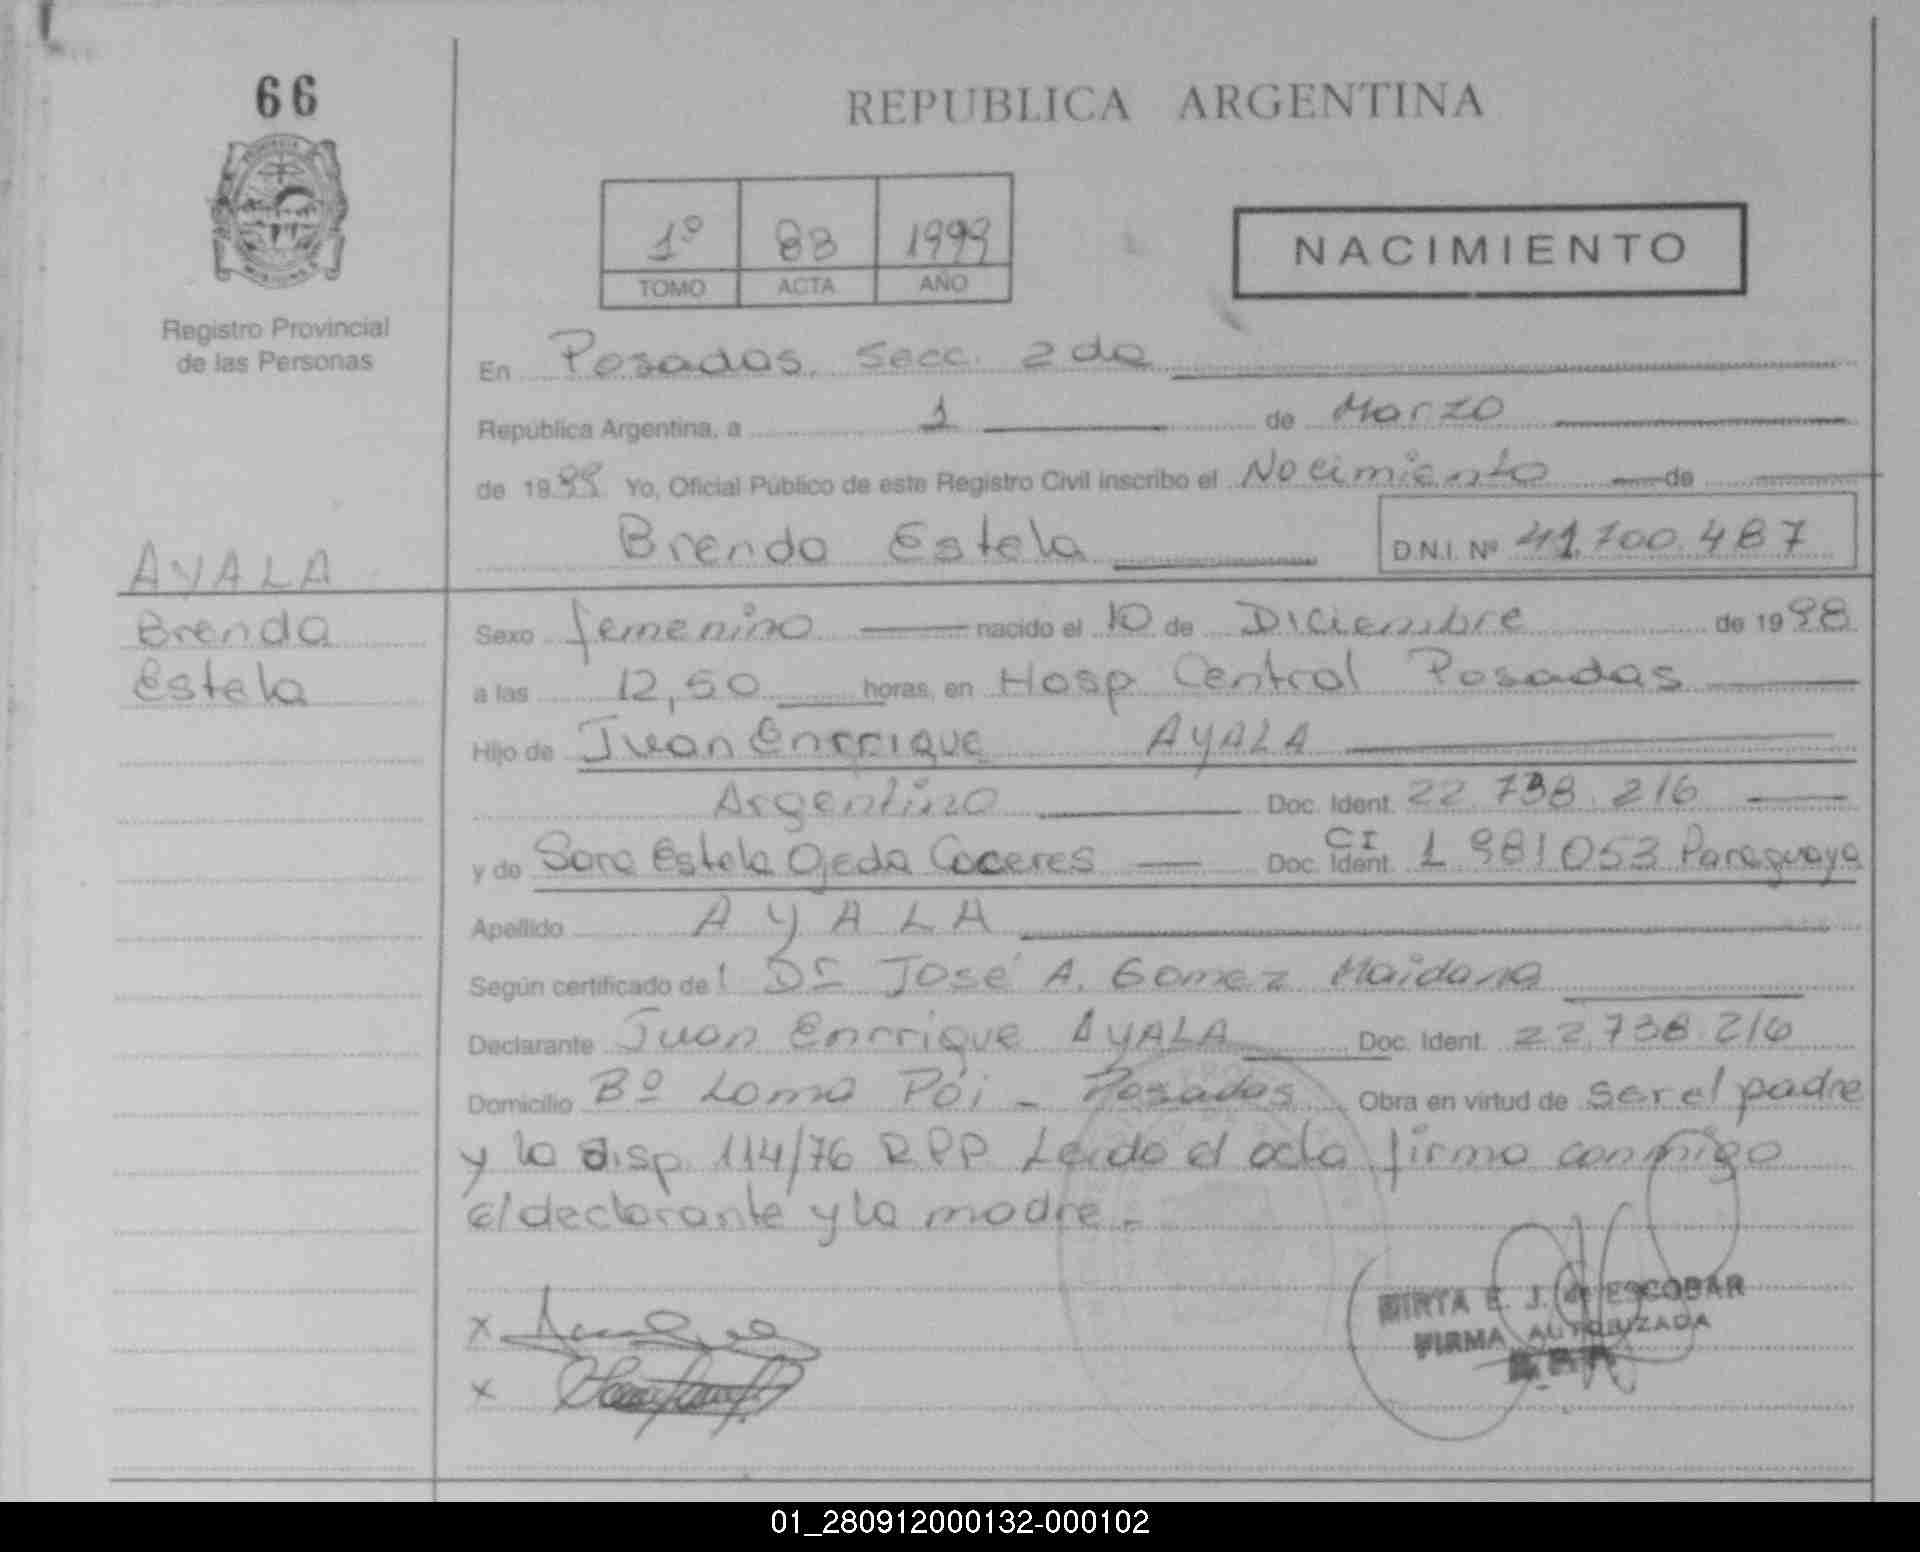 66
REPUBLICA ARGENTINA
1º 83 1999
TOMO ACTA AÑO
NACIMIENTO
Registro Provincial
de las Personas
En Posadas, Secc. 2da
República Argentina, a 1 de Marzo
de 1999 Yo, Oficial Público de este Registro Civil inscribo el Nacimiento de
Brenda Estela D.N.I. Nº 41.700.487
AYALA
Brenda
Estela
Sexo femenino nacido el 10 de Diciembre de 1998
a las 12,50 horas, en Hosp Central Posadas
Hijo de Juan Enrrique AYALA
Argentino Doc. Ident. 22.738.216
y de Sara Estela Ojeda Caceres Doc. Ident. CI 1981053 Paraguaya
Apellido AYALA
Según certificado de Dr José A. Gomez Maidana
Declarante Juan Enrrique AYALA Doc. Ident. 22.738.216
Domicilio Bº Loma Poi - Posadas Obra en virtud de ser el padre
y la disp. 114/76 R.P.P. Leida el acta firma conmigo
el declarante y la madre.-
x
x
E. J. de ESCOBAR
FIRMA AUTORIZADA
01_280912000132-000102